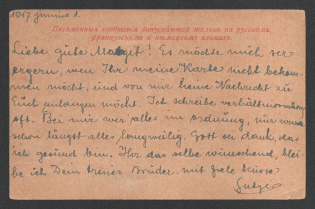 1917 junius 1.
Письменныя сообщенія допускаются только на русскомъ,
французскомъ и нѣмецкомъ языкахъ.
Liebe gute Margit! Es möchte mich ser
ergern, wen Ihr meine Karte nicht bekom-
men möcht, und von mir keine Nachricht zu
Euch anlangen möcht. Ich schreibe verhältnismässig
oft. Bei mir wer alles in ordnung, nur
schon längst alles langweilig. Gott sei dank, das
ich gesund bin. Ihr das selbe wünschend, blei-
be ich Dein treuer Brüder. mit viele küsse